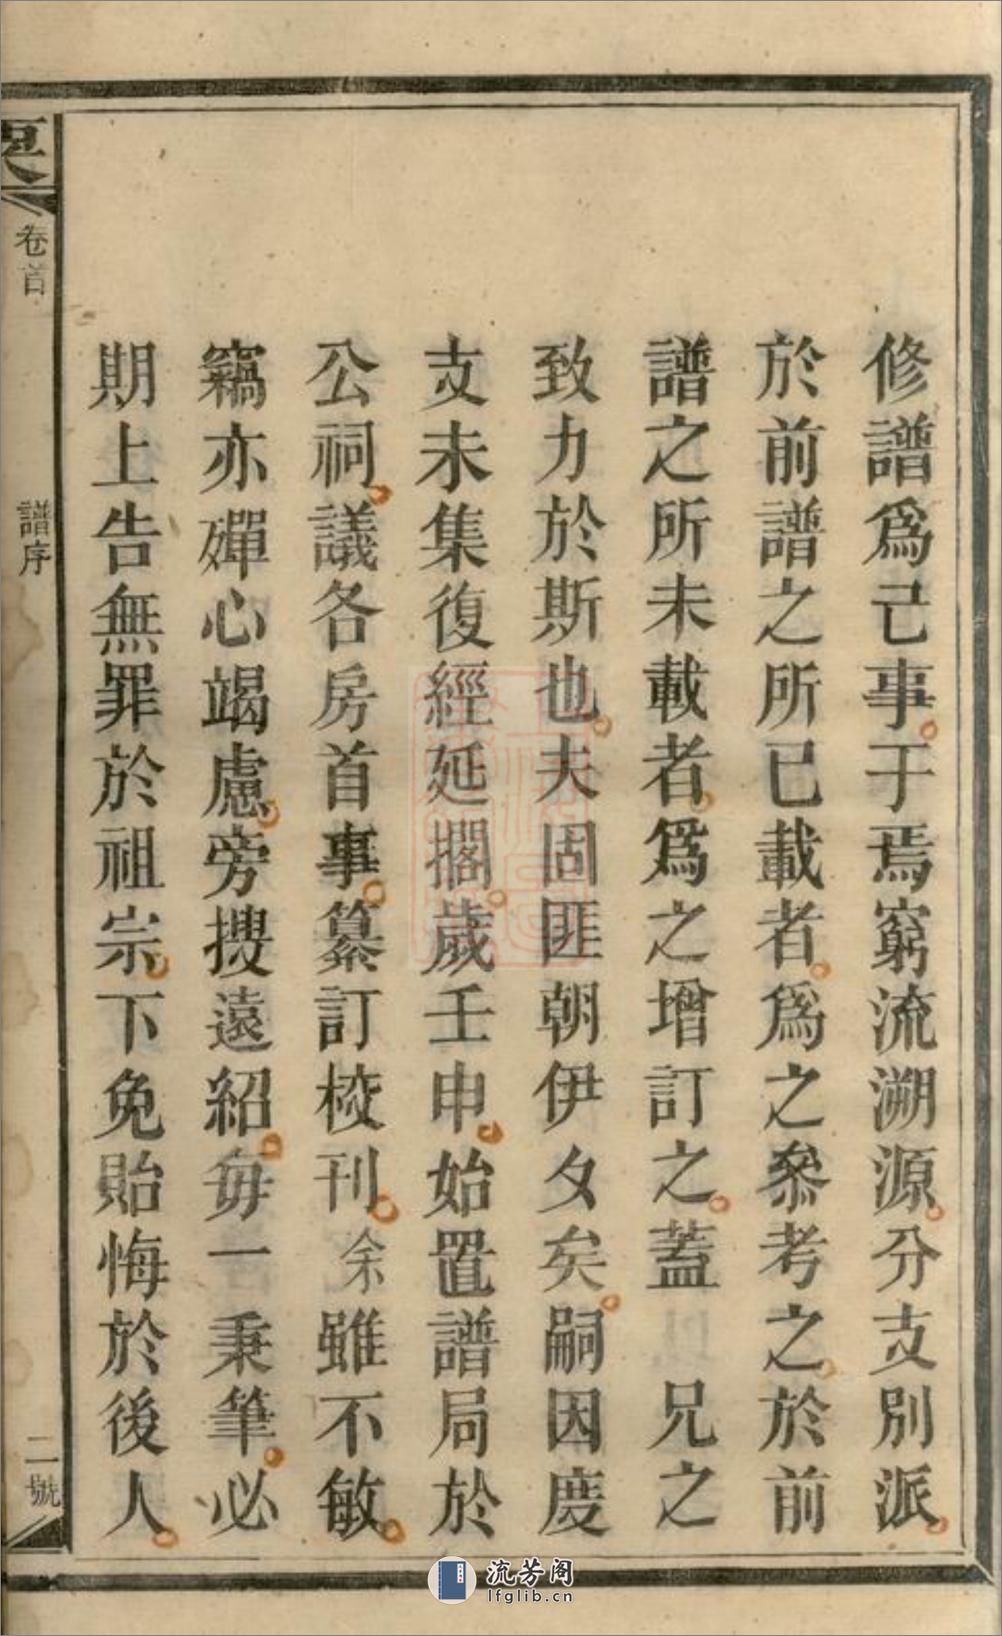 修譜爲己事于焉窮流溯源分支別派
於前譜之所已載者爲之叅考之於前
譜之所未載者爲之增訂之蓋 兄之
致力於斯也夫固匪朝伊夕矣嗣因度
支未集復經延擱歲壬申始置譜局於
公祠議各房首事纂訂校刊余雖不敏
竊亦殫心竭慮旁搜遠紹每一秉筆必
期上告無罪於祖宗下免貽悔於後人
卷首
譜序
二號
流芳阁
lfglib.cn